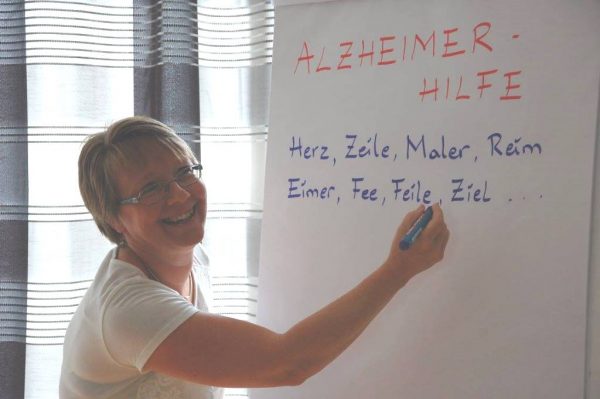 ALZHEIMER -
HILFE
Herz, Zeile, Maler, Reim
Eimer, Fee, Feile, Ziel ...